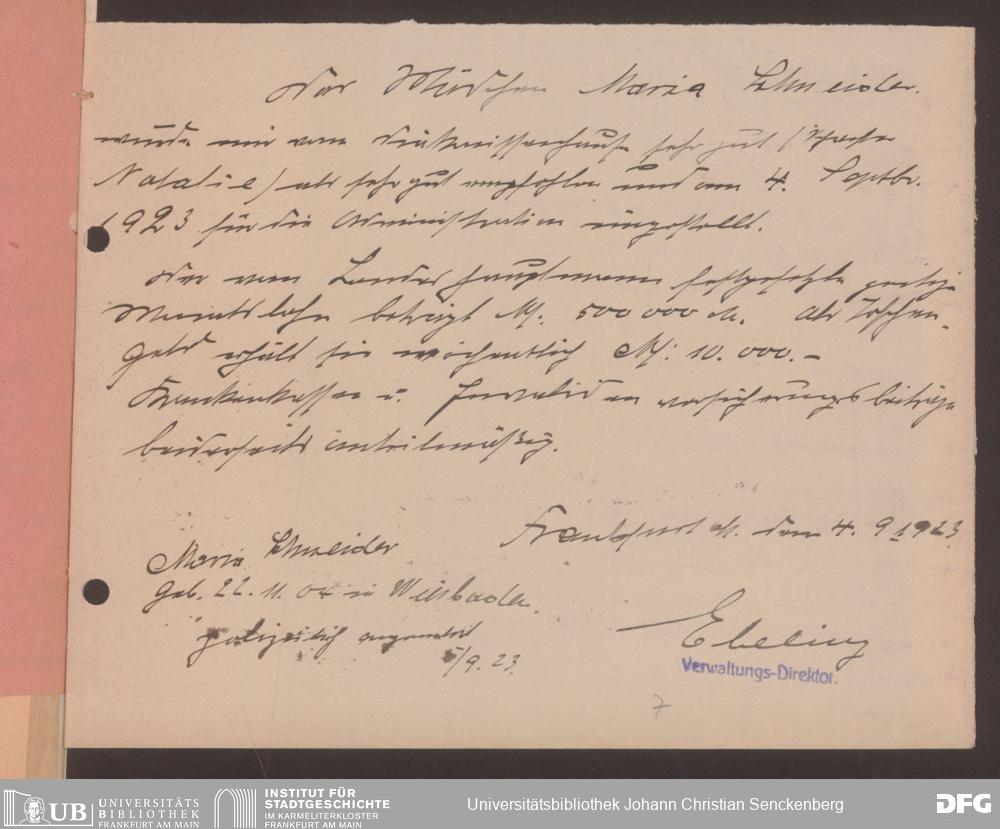 Das Mädchen Maria Schneider.
wurde mir vom Diakonissenhause sehr gut (Schwester
Natalie) als sehr gut empfohlen und am 4. Septbr.
1923 für die Administration eingestellt.
Der vom Landeshauptmann festgesetzte
Monatslohn beträgt M. 500 000 M. Als Taschen-
geld erhält sie wöchentlich M: 10.000.-
Krankenkassen u. Invalidenversicherungsbeiträge
beiderseits anteilmäßig.
Frankfurt a/M. den 4. 9. 1923.
Maria Schneider
geb. 22. 11. 04 in Wiesbaden.
polizeilich angemeldet
5/9. 23.
Ebeling
Verwaltungs-Direktor.
7
UB UNIVERSITÄTS
BIBLIOTHEK
FRANKFURT AM MAIN
INSTITUT FÜR
STADTGESCHICHTE
IM KARMELITERKLOSTER
FRANKFURT AM MAIN
Universitätsbibliothek Johann Christian Senckenberg
DFG